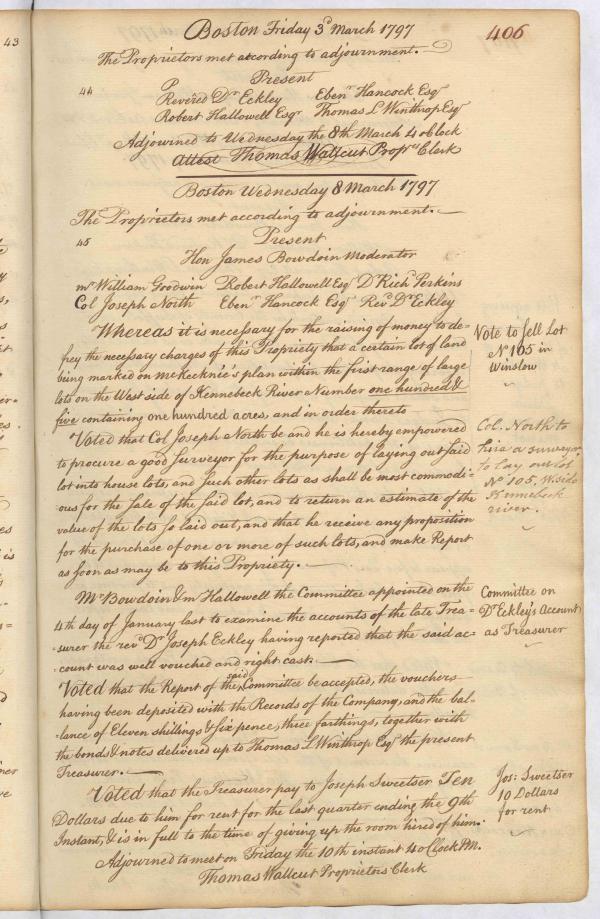 Boston Friday 3d March 1797
406
The Proprietors met according to adjournment.
44
Present
P
Revered Dr Eckley Ebenr Hancock Esqr
Robert Hallowell Esqr Thomas L Winthrop Esqr
Adjourned to Wednesday the 8th March 4 oClock
Attest Thomas Wallcut Proprs Clerk
Boston Wednesday 8 March 1797
The Proprietors met according to adjournment.
45
Present
Hon James Bowdoin Moderator
mr William Goodwin Robert Hallowell Esqr Dr Richd Perkins
Col Joseph North Ebenr Hancock Esqr Revd Dr Eckley
Whereas it is necessary for the raising of money to de=
frey the necessary charges of this Propriety that a certain lot of land
being marked on mcKecknie's plan within the first range of large
lots on the West side of Kennebeck River Number one hundred &
five containing one hundred acres, and in order thereto
Note to sell Lot
No 105 in
Winslow
Voted that Col Joseph North be and he is hereby empowered
to procure a good Surveyor for the purpose of laying out said
lot into house lots, and such other lots as shall be most commodi=
ous for the sale of the said lot, and to return an estimate of the
value of the lots so laid out, and that he receive any proposition
for the purchase of one or more of such lots, and make Report
as soon as may be to this Propriety.
Col. North to
hire a surveyor
to lay out lot
No 105, W. side
Kennebeck
river.
Mr Bowdoin & mr Hallowell the Committee appointed on the
4th day of January last to examine the accounts of the late Trea=
=surer the revd Dr Joseph Eckley having reported that the said ac=
=count was well vouched and right cast.
Committee on
Dr Eckley's Account
as Treasurer
Voted that the Report of the said Committee be accepted, the vouchers
having been deposited with the Records of the Company, and the bal=
lance of Eleven shillings & six pence, three farthings, together with
the bonds & notes delivered up to Thomas L Winthrop Esqr the present
Treasurer.
Voted that the Treasurer pay to Joseph Sweetser Ten
Dollars due to him for rent for the last quarter ending the 9th
Instant, & is in full to the time of giving up the room hired of him.
Jos: Sweetser
10 Dollars
for rent
Adjourned to meet on Friday the 10th instant 4 oClock PM.
Thomas Wallcut Proprietors Clerk
43